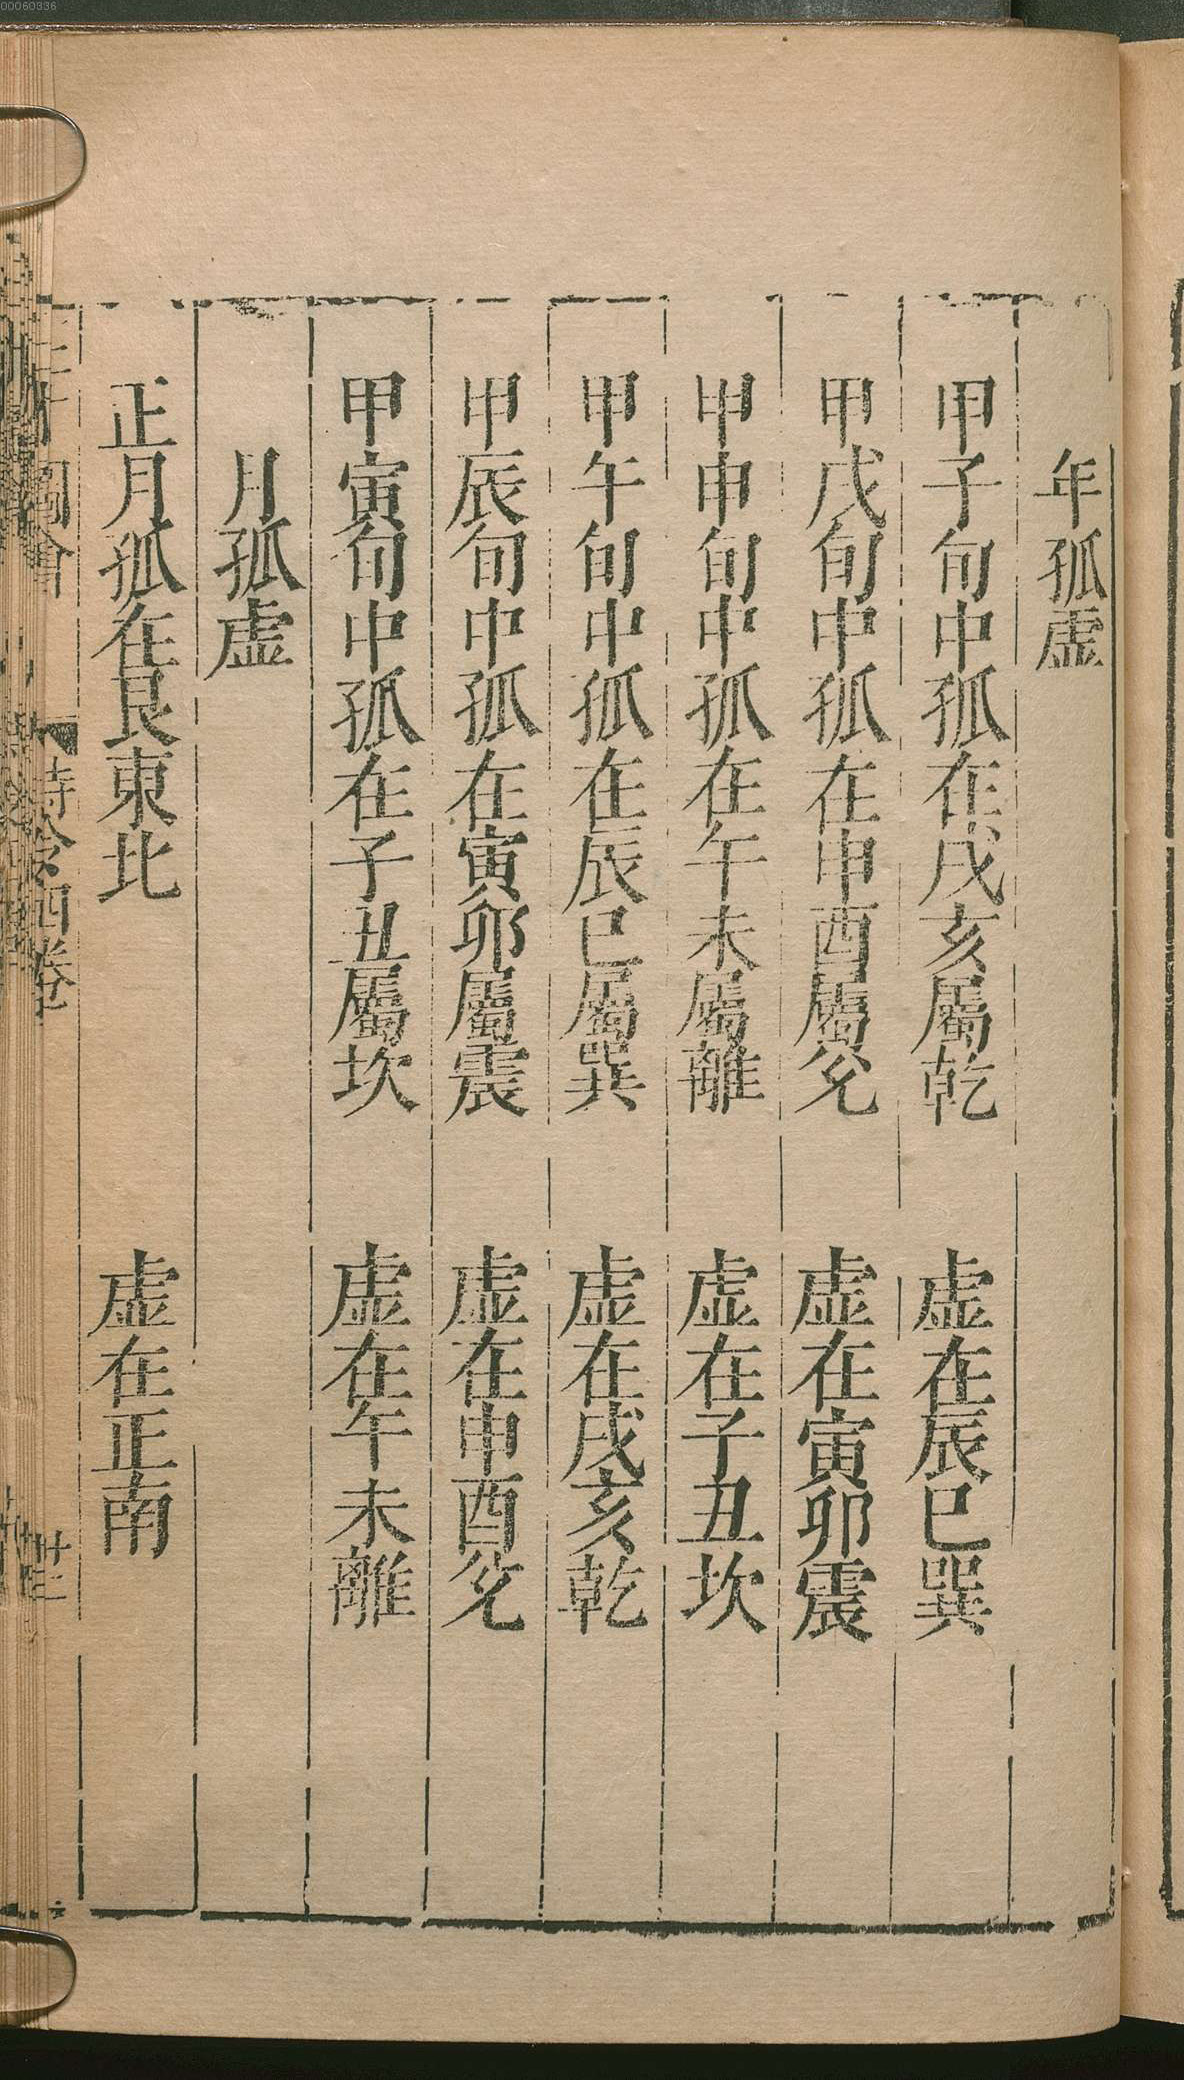 年孤虛
甲子旬中孤在戌亥屬乾　虛在辰巳巽
甲戌旬中孤在申酉屬兌　虛在寅卯震
甲申旬中孤在午未屬離　虛在子丑坎
甲午旬中孤在辰巳屬巽　虛在戌亥乾
甲辰旬中孤在寅卯屬震　虛在申酉兌
甲寅旬中孤在子丑屬坎　虛在午未離
月孤虛
正月孤在艮東北　虛在正南
三才圖會　時令四卷
00060336